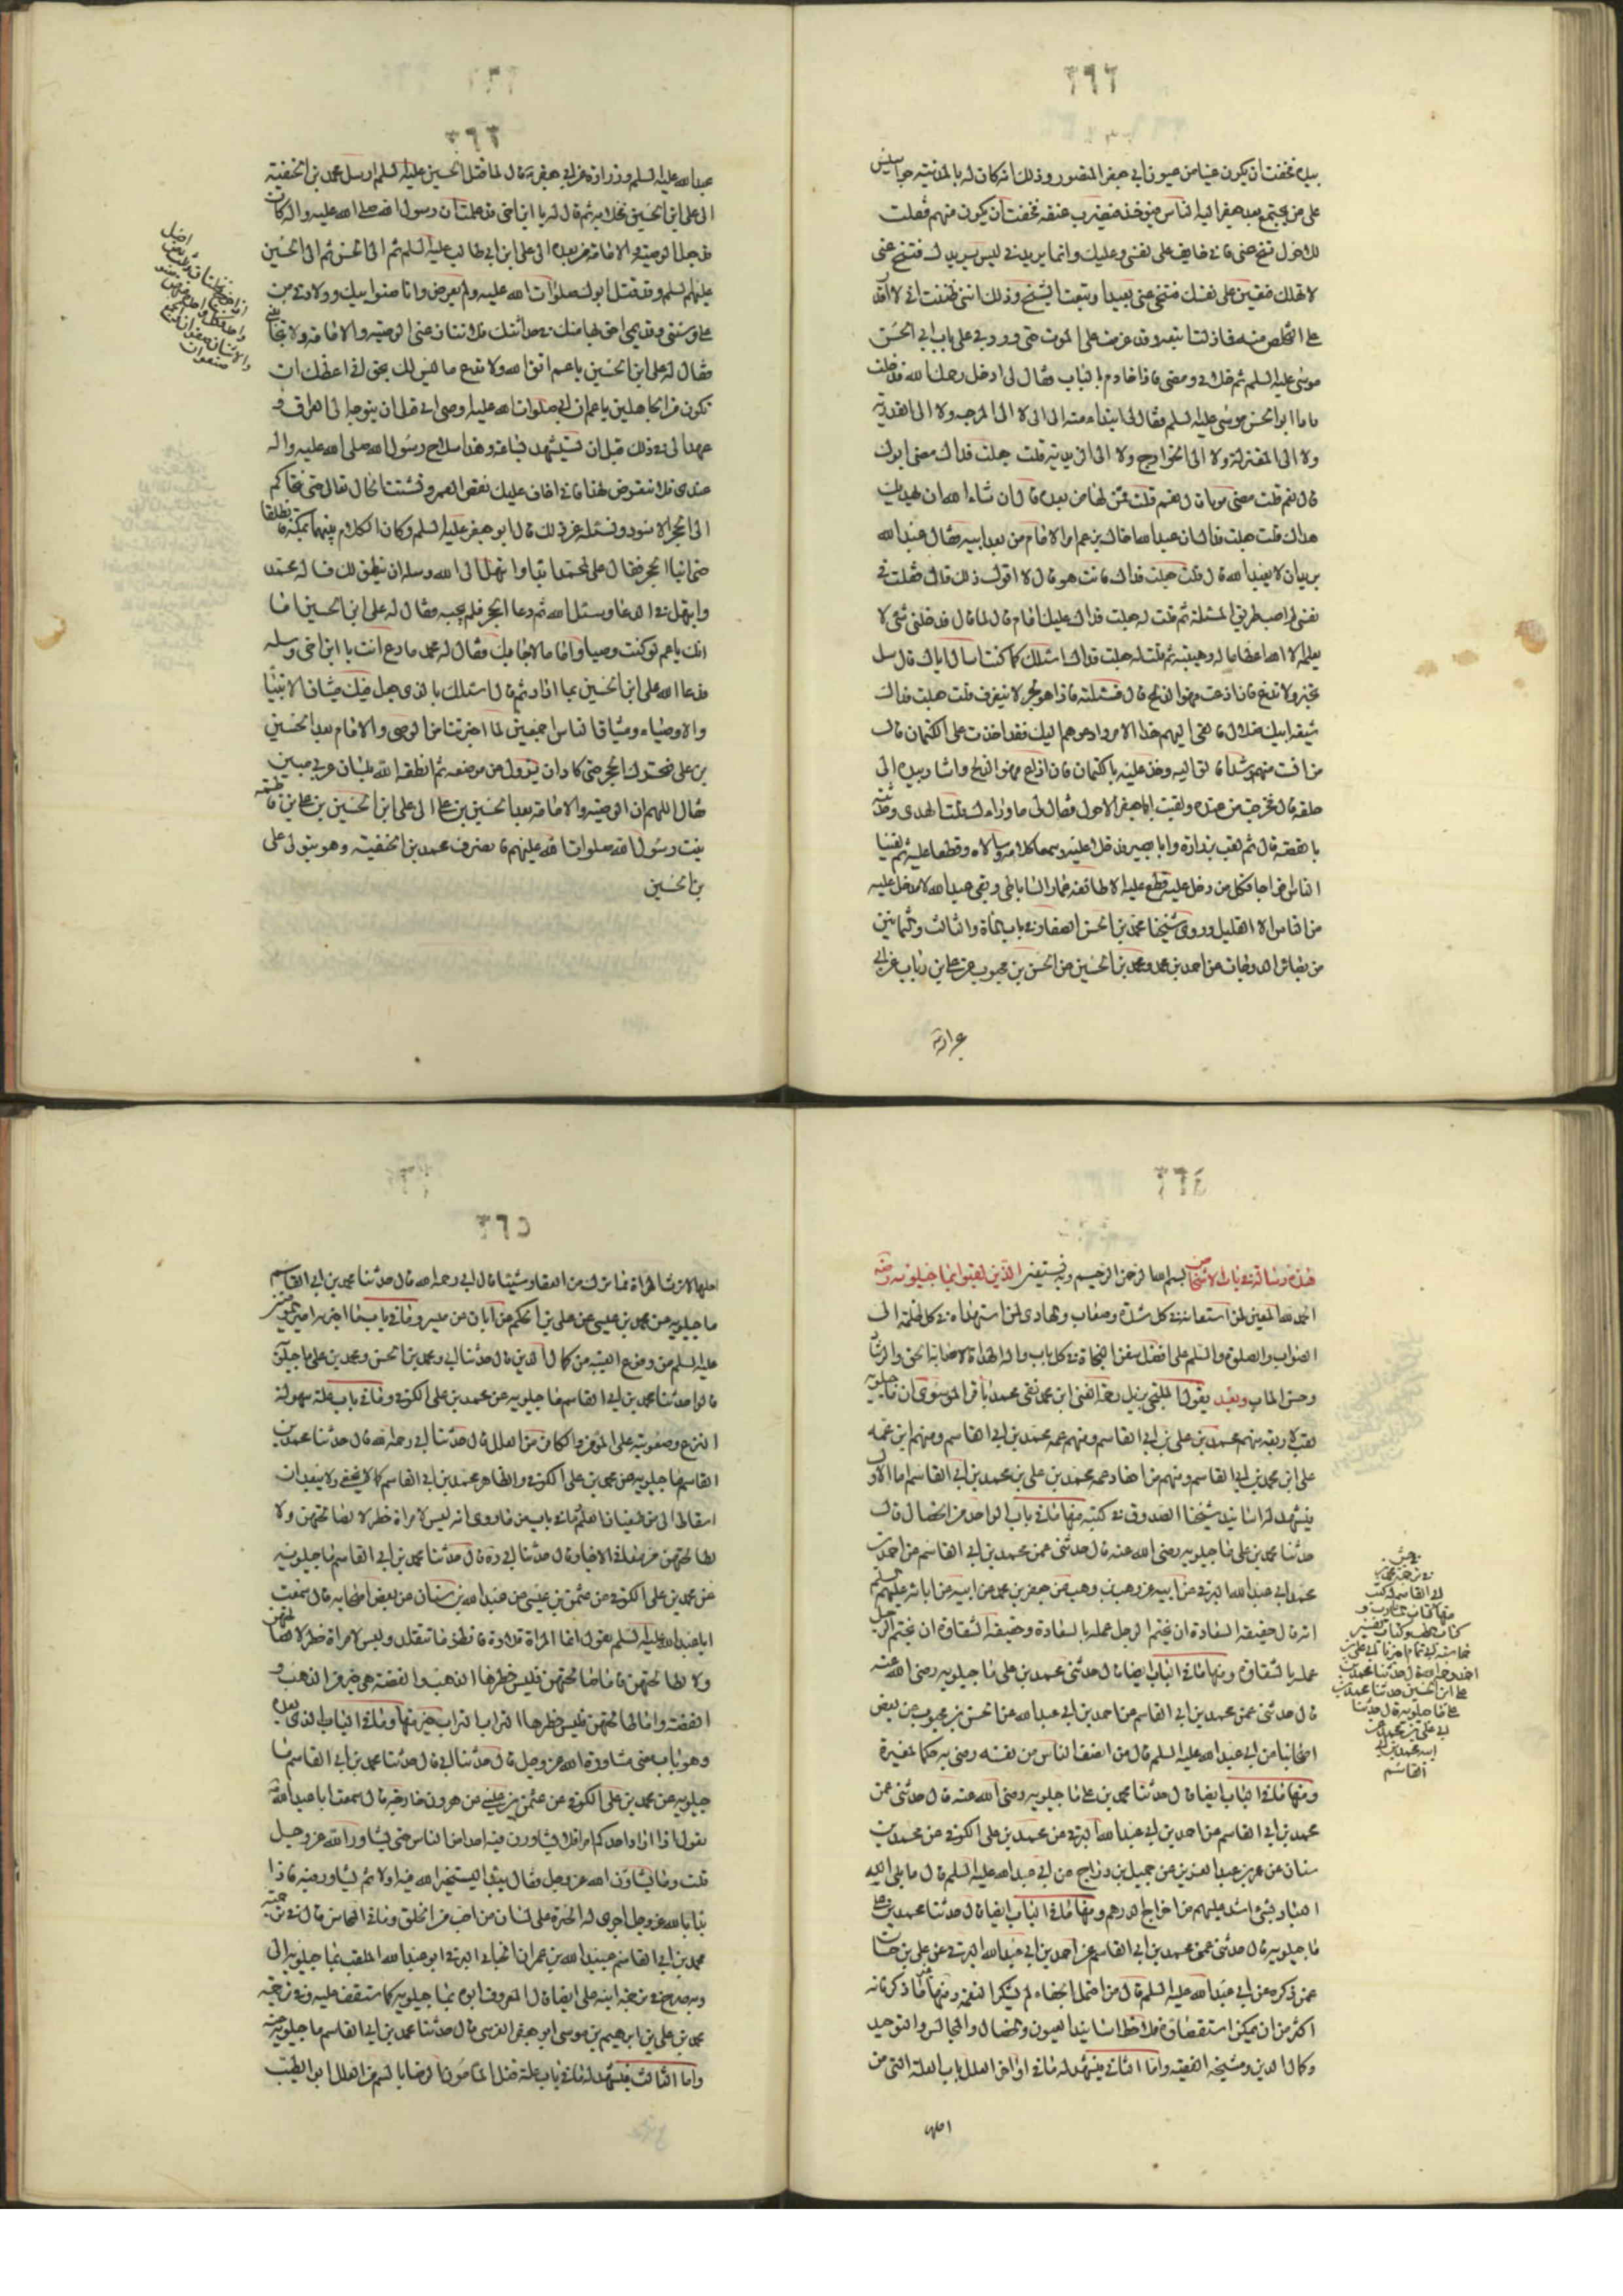 ٢٦٢
بيده فخفت ان يكون عينا من عيون ابي جعفر المنصور وذلك انه كان له بالمدينة جواسيس
على من يجتمع بعد جعفر اليه الناس فيؤخذ فيضرب عنقه فخفت ان يكون منهم فقلت
للاحول تنح عني فاني خايف على نفسي وعليك وانما يريدني ليس يريدك فتنح عني
لا تهلك فتعين على نفسك فتنحى عني بعيدا وتبعت الشيخ وذلك انني ظننت اني لا اقدر
على التخلص منه فما زلت اتبعه وقد عزمت على الموت حتى ورد بي على باب ابي الحسن
موسى عليه السلم ثم خلاني ومضى فاذا خادم بالباب فقال لي ادخل رحمك الله فدخلت
فاذا ابو الحسن موسى عليه السلم فقال لي ابتداء منه الي الي لا الى المرجئة ولا الى القدرية
ولا الى المعتزلة ولا الى الخوارج ولا الى الزيدية قلت جعلت فداك مضى ابوك
قال نعم قلت مضى موتا قال نعم قلت فمن لنا من بعده قال ان شاء الله ان يهديك
هداك قلت جعلت فداك ان عبد الله اخاك يزعم انه الامام من بعد ابيه فقال عبد الله
يريد ان لا يعبد الله قال قلت جعلت فداك فانت هو قال لا اقول ذلك قال فقلت في
نفسي لم اصب طريق المسئلة ثم قلت له جعلت فداك عليك امام قال لا قال فدخلني شئ لا
يعلمه الا الله اعظاما له وهيبة ثم قلت له جعلت فداك اسئلك كما كنت اسأل اباك قال سل
تخبر ولا تذع فان اذعت فهو الذبح قال فسئلته فاذا هو بحر لا ينزف قلت جعلت فداك
شيعة ابيك ضلال فالقي اليهم هذا الامر وادعوهم اليك فقد اخذت علي الكتمان قال
من آنست منهم رشدا فالق اليه وخذ عليه بالكتمان فان اذاع فهو الذبح واشار بيده الى
حلقه قال فخرجت من عنده ولقيت ابا جعفر الاحول فقال لي ما وراءك قلت الهدى وحدثته
بالقصة قال ثم لقينا زرارة وابا بصير فدخلا عليه وسمعا كلامه وسألاه وقطعا عليه ثم لقينا
الناس افواجا فكل من دخل عليه قطع عليه الا طائفة عمار الساباطي وبقي عبد الله لا يدخل عليه
من الناس الا القليل وروى شيخنا محمد بن الحسن الصفار في باب المأة والثالث وثمانين
من بصائر الدرجات عن احمد بن محمد ومحمد بن الحسين عن الحسن بن محبوب عن علي بن رئاب عن ابي
٢٦٣
عبد الله عليه السلم وزرارة عن ابي جعفر ع قال لما قتل الحسين عليه السلم ارسل محمد بن الحنفية
الى علي ابن الحسين فخلا به ثم قال له يا ابن اخي قد علمت ان رسول الله صلى الله عليه واله كان
قد جعل الوصية والامامة من بعده الى علي ابن ابي طالب عليه السلم ثم الى الحسن ثم الى الحسين
عليهم السلم وقد قتل ابوك صلوات الله عليه ولم يوص وانا عمك وصنو ابيك وولادتي من
علي وسني وقدمتي احق بها منك في حداثتك فلا تنازعني الوصية والامامة ولا تجانبني
فقال له علي ابن الحسين يا عم اتق الله ولا تدع ما ليس لك بحق اني اعظك ان
تكون من الجاهلين يا عم ان ابي صلوات الله عليه اوصى الي قبل ان يتوجه الى العراق و
عهد الي في ذلك قبل ان يستشهد بساعة وهذا سلاح رسول الله صلى الله عليه واله
عندي فلا تتعرض لهذا فاني اخاف عليك نقص العمر وتشتت الحال تعال حتى نتحاكم
الى الحجر الاسود ونسئله عن ذلك قال ابو جعفر عليه السلم وكان الكلام بينهما بمكة فانطلقا
حتى اتيا الحجر فقال علي لمحمد ابتدأ وابتهل الى الله وسله ان ينطق لك فسأله محمد
وابتهل في الدعا وسئل الله ثم دعا الحجر فلم يجبه فقال له علي ابن الحسين اما
انك يا عم لو كنت وصيا واماما لاجابك فقال له محمد فادع انت يا ابن اخي وسله
فدعا الله علي ابن الحسين بما اراد ثم قال اسئلك بالذي جعل فيك ميثاق الانبياء
والاوصياء وميثاق الناس اجمعين لما اخبرتنا من الوصي والامام بعد الحسين
بن علي فتحرك الحجر حتى كاد ان يزول عن موضعه ثم انطقه الله بلسان عربي مبين
فقال اللهم ان الوصية والامامة بعد الحسين بن علي الى علي ابن الحسين بن علي بن فاطمة
بنت رسول الله صلوات الله عليهم فانصرف محمد بن الحنفية وهو يتولى علي
بن الحسين
٢٦٤
هذه رسالة في بيان الاشخاص بسم الله الرحمن الرحيم وبه نستعين الذين لقبوا بماجيلويه
الحمد لله المعين لمن استعانه في كل شدة وصعاب والهادي لمن استهداه في كل ظلمة الى
الصواب والصلوة والسلم على افضل سفن النجاة في كل باب واله الهداة لاصابة الحق والرشاد
وحسن الماب وبعد يقول الملتجي بنيل رحمة الغني ابن محمد نقي محمد باقر الموسوي ان ماجيلويه
لقب لاربعة منهم محمد بن علي بن ابي القاسم ومنهم عمه محمد بن ابي القاسم ومنهم ابن عمه
علي ابن محمد بن ابي القاسم ومنهم من احفاد عمه محمد بن علي بن محمد بن ابي القاسم اما الاول
فيشهد له اسانيد شيخنا الصدوق في كتبه منها ما في باب الواحد من الخصال قال
حدثنا محمد بن علي ماجيلويه رضي الله عنه قال حدثني عمي محمد بن ابي القاسم عن احمد بن
محمد ابي عبد الله البرقي عن ابيه عن وهب بن وهب عن جعفر بن محمد عن ابيه عن ابائه عليهم السلم
انه قال حقيقة السعادة ان يختم الرجل عمله بالسعادة وحقيقة الشقاوة ان يختم الرجل
عمله بالشقاوة ومنها ما في الباب ايضا قال حدثني محمد بن علي ماجيلويه رضي الله عنه
قال حدثني عمي محمد بن ابي القاسم عن احمد بن ابي عبد الله عن الحسن بن محبوب عن بعض
اصحابنا عن ابي عبد الله عليه السلم قال من انصف الناس من نفسه رضي به حكما لغيره
ومنها ما في الباب ايضا قال حدثنا محمد بن علي ماجيلويه رضي الله عنه قال حدثني عمي
محمد بن ابي القاسم عن احمد بن ابي عبد الله البرقي عن محمد بن علي الكوفي عن محمد بن
سنان عن عمر بن عبد العزيز عن جميل بن دراج عن ابي عبد الله عليه السلم قال ما بلي الله
العباد بشئ اشد عليهم من اخراج الدرهم ومنها ما في الباب ايضا قال حدثنا محمد بن علي
ماجيلويه قال حدثني عمي محمد بن ابي القاسم عن احمد بن ابي عبد الله البرقي عن علي بن حسان
عمن ذكره عن ابي عبد الله عليه السلم قال من احتمل الجفاء لم يشكر النعمة ومنها ما ذكرناه
اكثر من ان يمكن استقصاؤه فلاحظ اسانيد العيون والخصال والمجالس والتوحيد
وكمال الدين ومشيخة الفقيه واما الثاني فيشهد له ما في اواخر العلل باب العلة التي من
اجلها
٢٦٥
اجلها لا ترث المراة مما ترك من العقار شيئا قال ابي رحمه الله قال حدثنا محمد بن ابي القاسم
ماجيلويه عن محمد بن عيسى عن علي بن الحكم عن ابان عن ميسر وما في باب ما اخبر به امير المؤمنين
عليه السلم من وقوع الغيبة من كمال الدين قال حدثنا ابي ومحمد بن الحسن ومحمد بن علي ماجيلويه
قالوا حدثنا محمد بن ابي القاسم ماجيلويه عن محمد بن علي الكوفي وما في باب علة سهولة
النزع وصعوبته على المؤمن والكافر من العلل قال حدثنا ابي رحمه الله قال حدثنا محمد بن
القاسم ماجيلويه عن محمد بن علي الكوفي والظاهر محمد بن ابي القاسم كما لا يخفى ولا يبعد ان
لصالحتهن من معاني الاخبار قال حدثنا ابي ره قال حدثنا محمد بن ابي القاسم ماجيلويه
عن محمد بن علي الكوفي عن عثمن بن عيسى عن عبد الله بن سنان عن بعض اصحابه قال سمعت
ابا عبد الله عليه السلم يقول انما المراة قلادة فانظر ما تتقلد وليس لامراة خطر لا لصالحتهن
ولا لطالحتهن فاما صالحتهن فليس خطرها الذهب والفضة هي خير من الذهب و
الفضة واما طالحتهن فليس خطرها التراب التراب خير منها وما في الباب الذي بعده
وهو باب معنى مشاورة الله عز وجل قال حدثنا ابي قال حدثنا محمد بن ابي القاسم ما
جيلويه عن محمد بن علي الكوفي عن عثمن بن عيسى عن هرون خارجة قال سمعت ابا عبد الله
يقول اذا اراد احدكم امرا فلا يشاورن فيه احدا من الناس حتى يشاور الله عز وجل
قلت وما مشاورة الله عز وجل فقال يبدأ فيستخير الله فيه اولا ثم يشاور فيه فاذا
بدأ بالله عز وجل اجرى له الخيرة على لسان من احب من الخلق وما في النجاشي قال في ترجمة
محمد بن ابي القاسم عبيد الله بن عمران الجنابي البرقي ابو عبد الله الملقب بماجيلويه الى
وبه صرح في ترجمة ابنه علي ايضا قال المعروف ابوه بماجيلويه كما ستقف عليه وفي ترجمة
محمد بن علي بن ابرهيم بن موسى ابو جعفر القرشي قال حدثنا محمد بن ابي القاسم ماجيلويه
واما الثالث فيشهد له ما في باب علة قتل المامون الرضا بالسم من العلل ابو الطيب